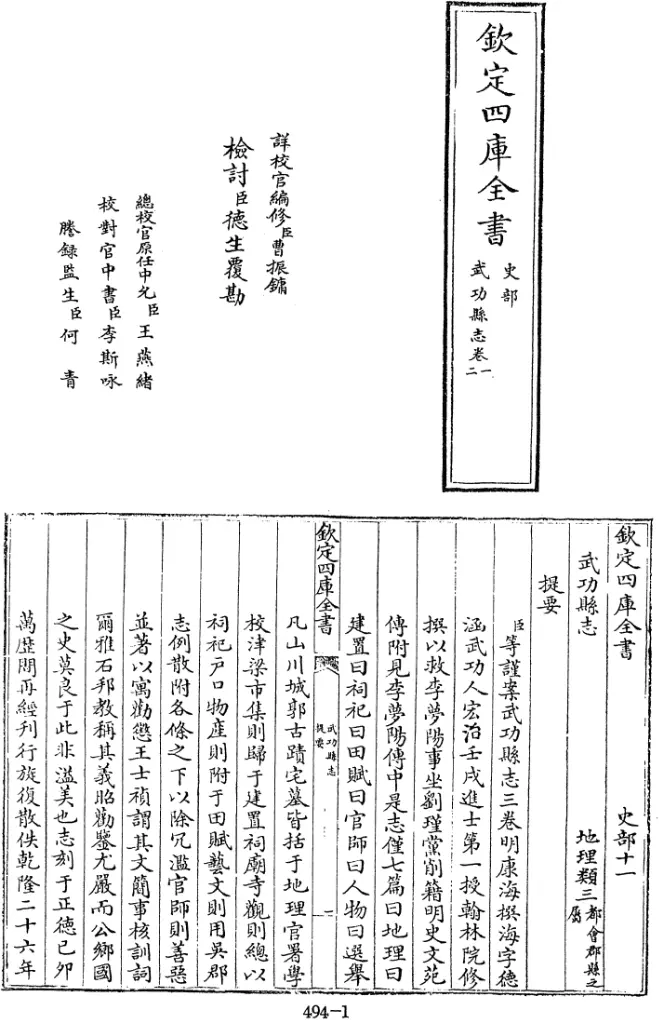 欽定四庫全書
史部
武功縣志卷一二
詳校官編修臣曹振鏞
檢討臣德生覆勘
總校官原任中允臣王燕緒
校對官中書臣李斯咏
謄錄監生臣何青
欽定四庫全書 史部十一
武功縣志 地理類三都會郡縣之屬
提要
臣等謹案武功縣志三卷明康海撰海字德
涵武功人宏治壬戌進士第一授翰林院修
撰以救李夢陽事坐劉瑾黨削籍明史文苑
傳附見李夢陽傳中是志僅七篇曰地理曰
建置曰祠祀曰田賦曰官師曰人物曰選舉
欽定四庫全書
武功縣志
提要
一
凡山川城郭古蹟宅墓皆括于地理官署學
校津梁市集則歸于建置祠廟寺觀則總以
祠祀戶口物產則附于田賦藝文則用吳郡
志例散附各條之下以除冗濫官師則善惡
並著以寓勸懲王士禎謂其文簡事核訓詞
爾雅石邦教稱其義昭勸鑒尤嚴而公鄉國
之史莫良于此非溢美也志刻于正德己卯
萬歷間再經刊行旋復散佚乾隆二十六年
494-1